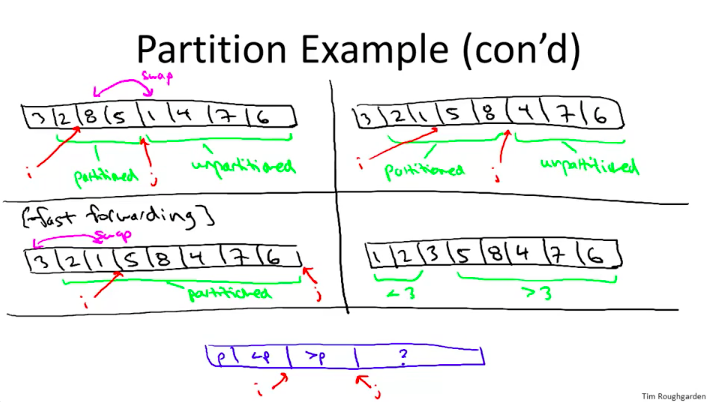 Partition Example (con'd)
swap
3 2 8 5 1 4 7 6
i partitioned j unpartitioned
3 2 1 5 8 4 7 6
i partitioned j unpartitioned
[fast forwarding]
swap
3 2 1 5 8 4 7 6
i partitioned j
1 2 3 5 8 4 7 6
<3 >3
p <p >p ?
i j
Tim Roughgarden